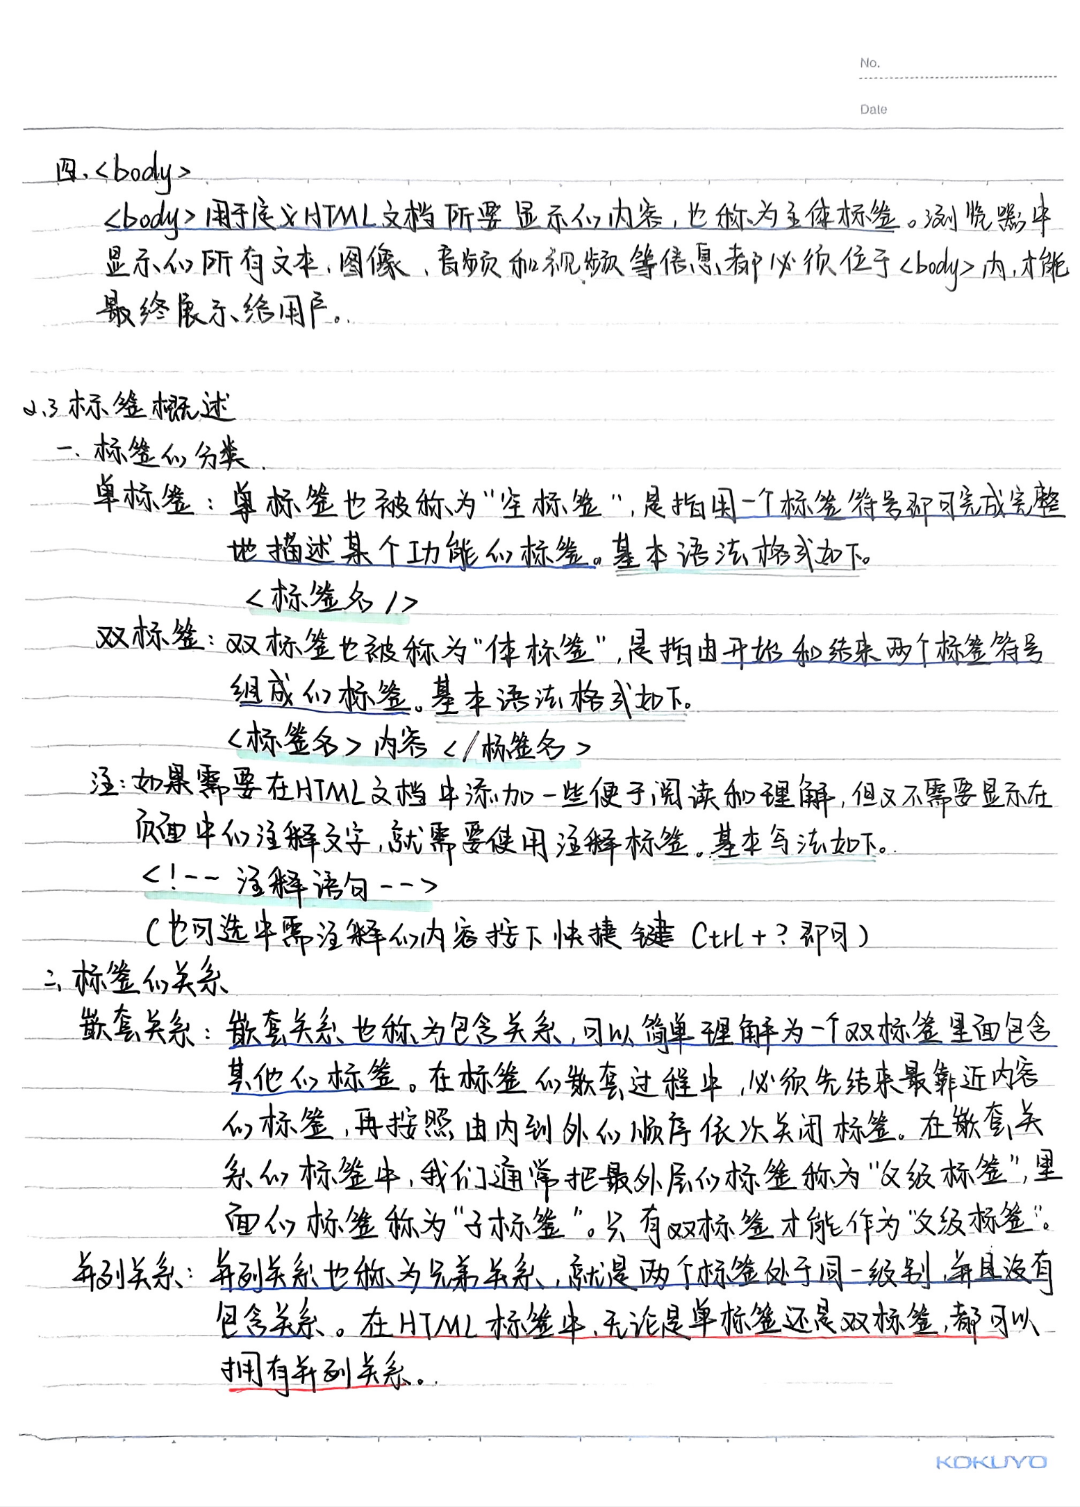 No.
Date
四、<body>
<body>用于定义HTML文档所要显示的内容，也称为主体标签。浏览器中
显示的所有文本、图像、音频和视频等信息都必须位于<body>内，才能
最终展示给用户。
2.3 标签概述
一、标签的分类
单标签：单标签也被称为“空标签”，是指用一个标签符号即可完成完整
地描述某个功能的标签。基本语法格式如下。
<标签名 />
双标签：双标签也被称为“体标签”，是指由开始和结束两个标签符号
组成的标签。基本语法格式如下。
<标签名>内容</标签名>
注：如果需要在HTML文档中添加一些便于阅读和理解，但又不需要显示在
页面中的注释文字，就需要使用注释标签。基本写法如下。
<!-- 注释语句 -->
（也可选中需注释的内容按下快捷键 Ctrl+？即可）
二、标签的关系
嵌套关系：嵌套关系也称为包含关系，可以简单理解为一个双标签里面包含
其他的标签。在标签的嵌套过程中，必须先结束最靠近内容
的标签，再按照由内到外的顺序依次关闭标签。在嵌套关
系的标签中，我们通常把最外层的标签称为“父级标签”，里
面的标签称为“子标签”。只有双标签才能作为“父级标签”。
并列关系：并列关系也称为兄弟关系，就是两个标签处于同一级别，并且没有
包含关系。在HTML标签中，无论是单标签还是双标签，都可以
拥有并列关系。
KOKUYO